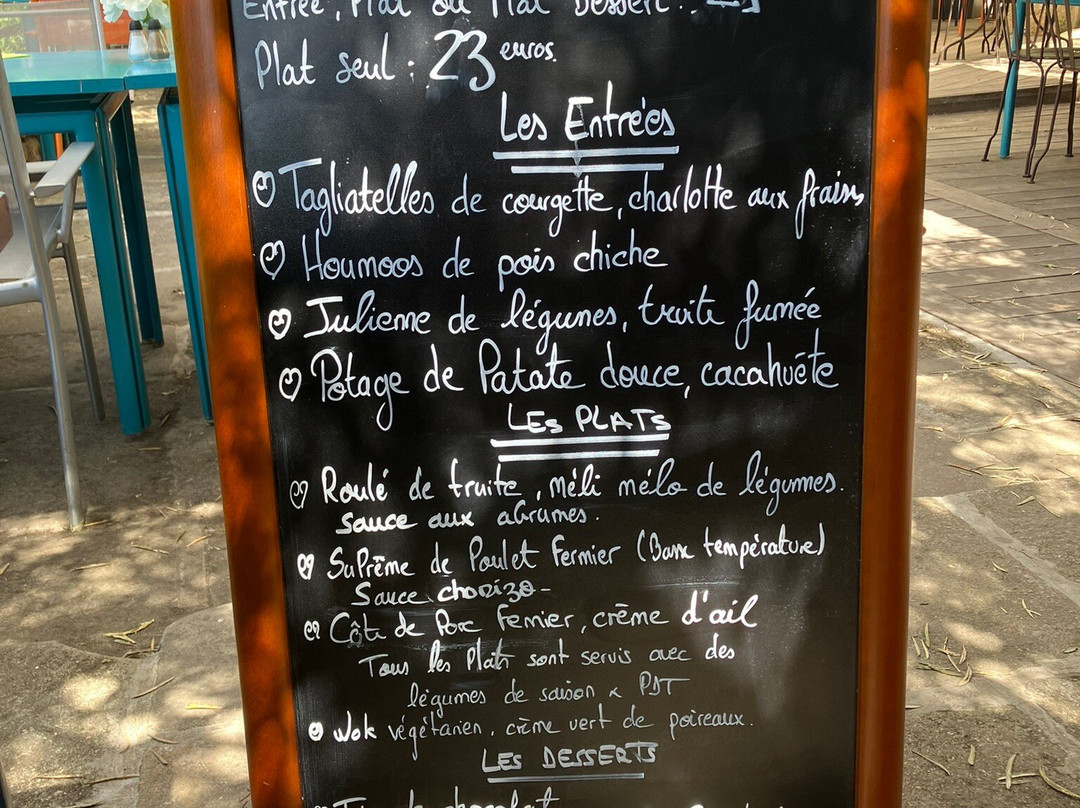 Entrée, Plat ou Plat Dessert :
Plat seul : 23 euros.
Les Entrées
Tagliatelles de courgette, charlotte aux fraises
Houmoos de pois chiche
Julienne de légumes, truite fumée
Potage de Patate douce, cacahuète
LES PLATS
Roulé de truite, méli mélo de légumes.
Sauce aux agrumes.
Suprême de Poulet Fermier (Basse température)
Sauce chorizo -
Côte de Porc Fermier, crème d'ail
Tous les Plats sont servis avec des
légumes de saison & PDT
Wok végétarien, crème vert de poireaux.
LES DESSERTS
chocolat